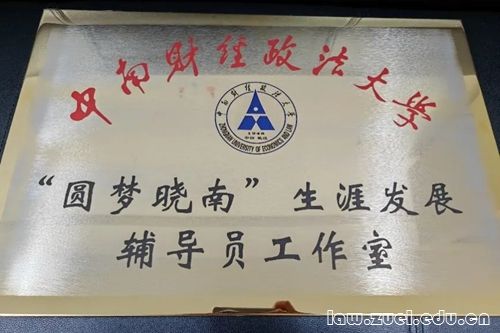 中南财经政法大学
中南财经政法大学
1948
中国 武汉
ZHONGNAN UNIVERSITY OF ECONOMICS AND LAW
“圆梦晓南”生涯发展
辅导员工作室
law.zuel.edu.cn